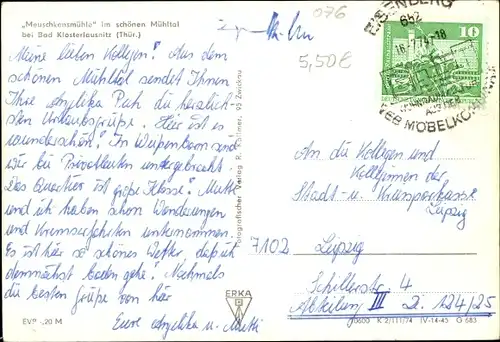 "Meuschkensmühle" im schönen Mühltal
bei Bad Klosterlausnitz (Thür.)
Meine lieben Kollegen! Aus dem
schönen Mühltal sendet Ihnen
Ihre Angelika Puh die herzlich-
sten Urlaubsgrüße. Hier ist es
wunderschön! In Weißenborn sind
wir bei Privatleuten untergebracht.
Das Quartier ist große Klasse! Mutti
und ich haben schon Wanderungen
und Kremserfahrten unternommen.
Es ist hier so schönes Wetter, daß ich
demnächst baden gehe! Nochmals
die besten Grüße von hier
Eure Angelika u. Mutti
EVP -,20 M
Fotografischer Verlag R. Kallmer, 95 Zwickau
ERKA
076
5,50€
EISENBERG
652
16.7.75-18
10
VEB MÖBELKOMBINAT
An die Kollegen und
Kolleginnen der
Stadt- u. Kreissparkasse
Leipzig
7102 Leipzig
Schillerstr. 4
Abteilung III Z. 124/25
0600 K 2/111/74 IV-14-45 G 683